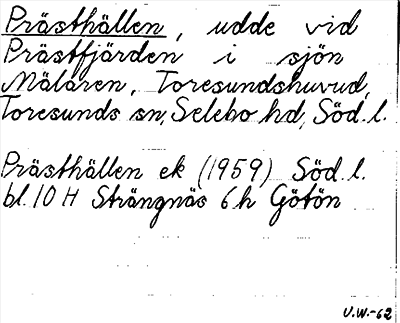 Prästhällen, udde vid
Prästfjärden i sjön
Mälaren, Toresundshuvud,
Toresunds sn, Selebo hd, Söd. l.
Prästhällen ek (1959) Söd. l.
bl. 10 H Strängnäs 6 h Götön
U.W.-62